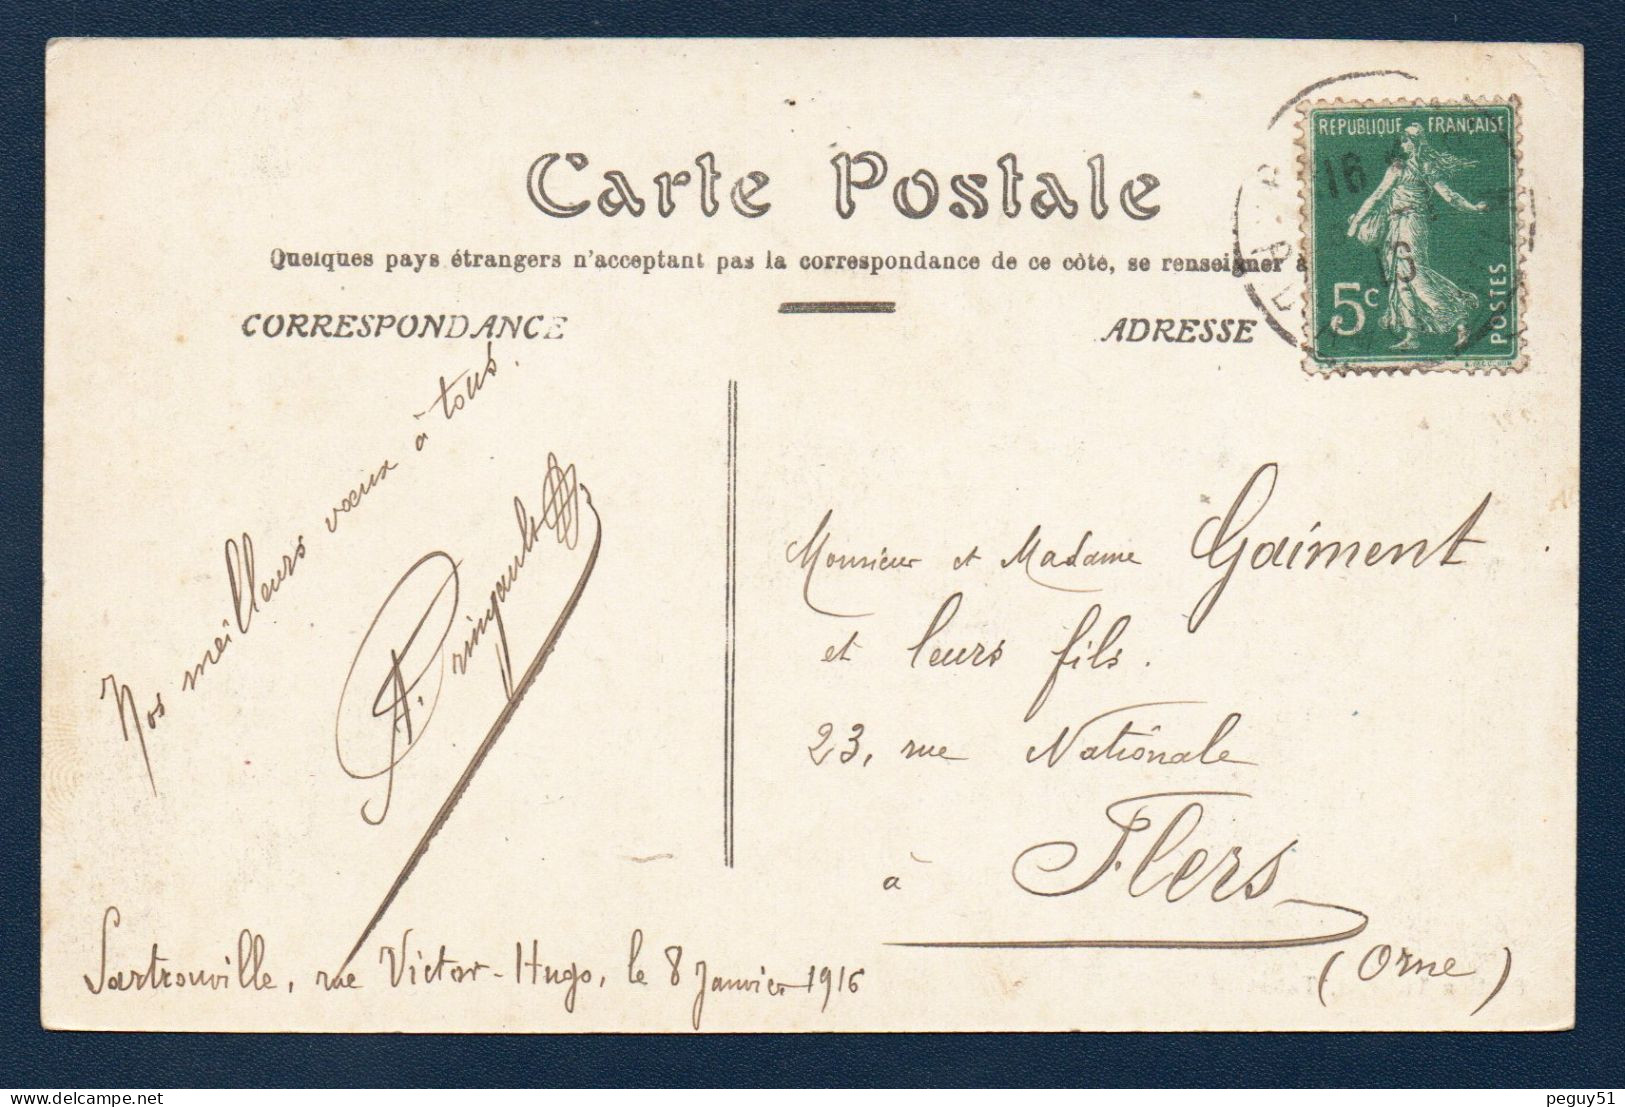 Carte Postale
Quelques pays étrangers n'acceptant pas la correspondance de ce côté, se renseigner à
CORRESPONDANCE
ADRESSE
RÉPUBLIQUE FRANÇAISE
16
16
5c
POSTES
Nos meilleurs vœux à tous.
A. Pringault
Sartrouville, rue Victor-Hugo, le 8 Janvier 1916
Monsieur et Madame Gaiment
et leurs fils.
23, rue Nationale
à Flers
(Orne)
peguy51